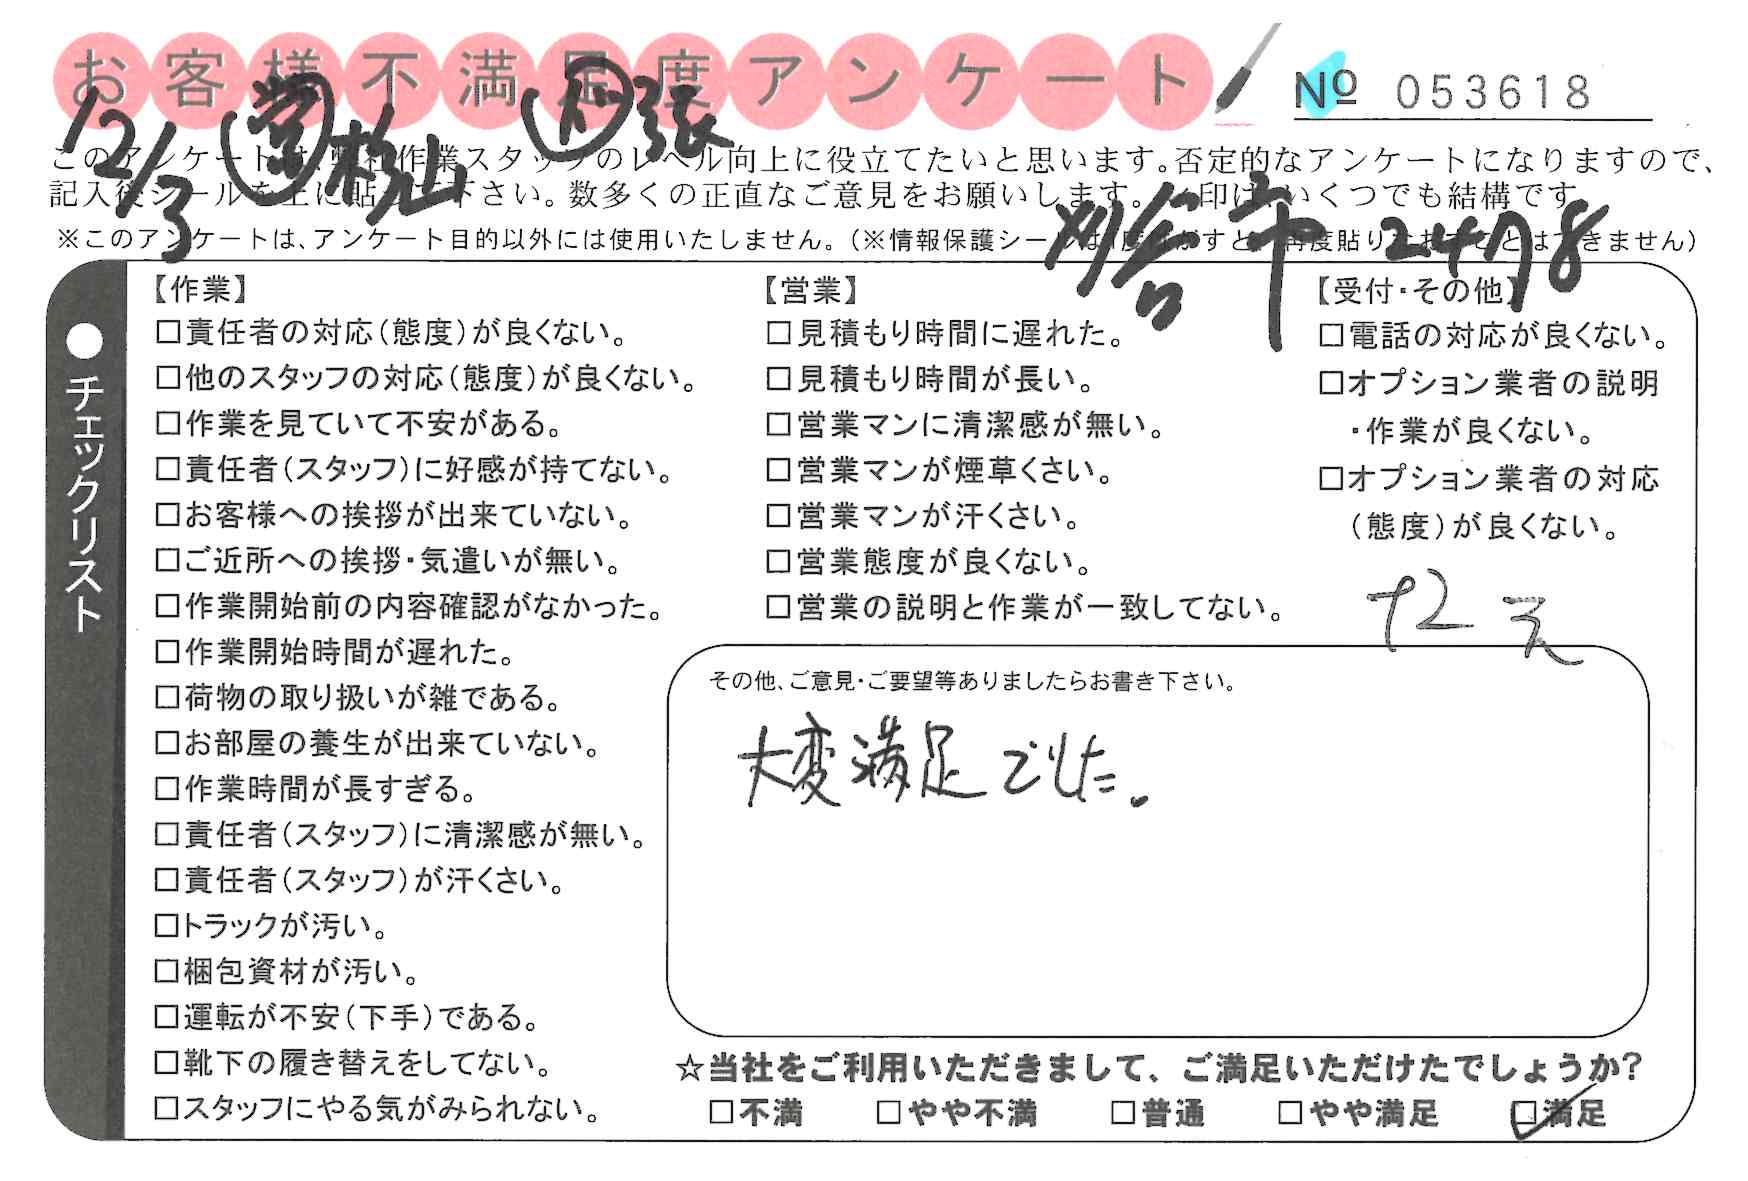 お客様不満足度アンケート
№ 053618
12/3 営 杉山 作 張
このアンケートは、弊社作業スタッフのレベル向上に役立てたいと思います。否定的なアンケートになりますので、
記入後シールを上に貼って下さい。数多くの正直なご意見をお願いします。✓印はいくつでも結構です
刈谷市 2478
※このアンケートは、アンケート目的以外には使用いたしません。(※情報保護シールは1度はがすと、再度貼りなおすことはできません)
●チェックリスト
【作業】
□責任者の対応(態度)が良くない。
□他のスタッフの対応(態度)が良くない。
□作業を見ていて不安がある。
□責任者(スタッフ)に好感が持てない。
□お客様への挨拶が出来ていない。
□ご近所への挨拶・気遣いが無い。
□作業開始前の内容確認がなかった。
□作業開始時間が遅れた。
□荷物の取り扱いが雑である。
□お部屋の養生が出来ていない。
□作業時間が長すぎる。
□責任者(スタッフ)に清潔感が無い。
□責任者(スタッフ)が汗くさい。
□トラックが汚い。
□梱包資材が汚い。
□運転が不安(下手)である。
□靴下の履き替えをしてない。
□スタッフにやる気がみられない。
【営業】
□見積もり時間に遅れた。
□見積もり時間が長い。
□営業マンに清潔感が無い。
□営業マンが煙草くさい。
□営業マンが汗くさい。
□営業態度が良くない。
□営業の説明と作業が一致してない。
【受付・その他】
□電話の対応が良くない。
□オプション業者の説明
・作業が良くない。
□オプション業者の対応
(態度)が良くない。
その他、ご意見・ご要望等ありましたらお書き下さい。
大変満足でした。
☆当社をご利用いただきまして、ご満足いただけたでしょうか?
□不満 □やや不満 □普通 □やや満足 ☑満足